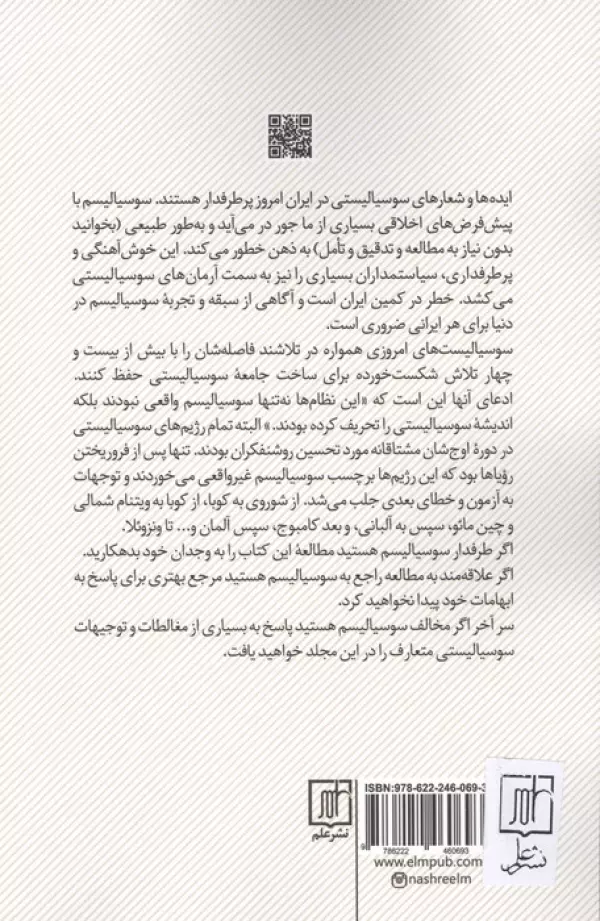 ایده‌ها و شعارهای سوسیالیستی در ایران امروز پرطرفدار هستند. سوسیالیسم با
پیش‌فرض‌های اخلاقی بسیاری از ما جور در می‌آید و به‌طور طبیعی (بخوانید
بدون نیاز به مطالعه و تدقیق و تأمل) به ذهن خطور می‌کند. این خوش‌آهنگی و
پرطرفداری، سیاستمداران بسیاری را نیز به سمت آرمان‌های سوسیالیستی
می‌کشد. خطر در کمین ایران است و آگاهی از سبقه و تجربهٔ سوسیالیسم در
دنیا برای هر ایرانی ضروری است.
سوسیالیست‌های امروزی همواره در تلاشند فاصله‌شان را با بیش از بیست و
چهار تلاش شکست‌خورده برای ساخت جامعهٔ سوسیالیستی حفظ کنند.
ادعای آنها این است که «این نظام‌ها نه‌تنها سوسیالیسم واقعی نبودند بلکه
اندیشهٔ سوسیالیستی را تحریف کرده بودند.» البته تمام رژیم‌های سوسیالیستی
در دورهٔ اوج‌شان مشتاقانه مورد تحسین روشنفکران بودند. تنها پس از فروریختن
رؤیاها بود که این رژیم‌ها برچسب سوسیالیسم غیرواقعی می‌خوردند و توجهات
به آزمون و خطای بعدی جلب می‌شد. از شوروی به کوبا، از کوبا به ویتنام شمالی
و چین مائو، سپس به آلبانی، و بعد کامبوج، سپس آلمان و... تا ونزوئلا.
اگر طرفدار سوسیالیسم هستید مطالعهٔ این کتاب را به وجدان خود بدهکارید.
اگر علاقه‌مند به مطالعه راجع به سوسیالیسم هستید مرجع بهتری برای پاسخ به
ابهامات خود پیدا نخواهید کرد.
سر آخر اگر مخالف سوسیالیسم هستید پاسخ به بسیاری از مغالطات و توجیهات
سوسیالیستی متعارف را در این مجلد خواهید یافت.
ISBN: 978-622-246-069-3
9 786222 460693
نشر علم
www.elmpub.com
nashreelm
نشر علم